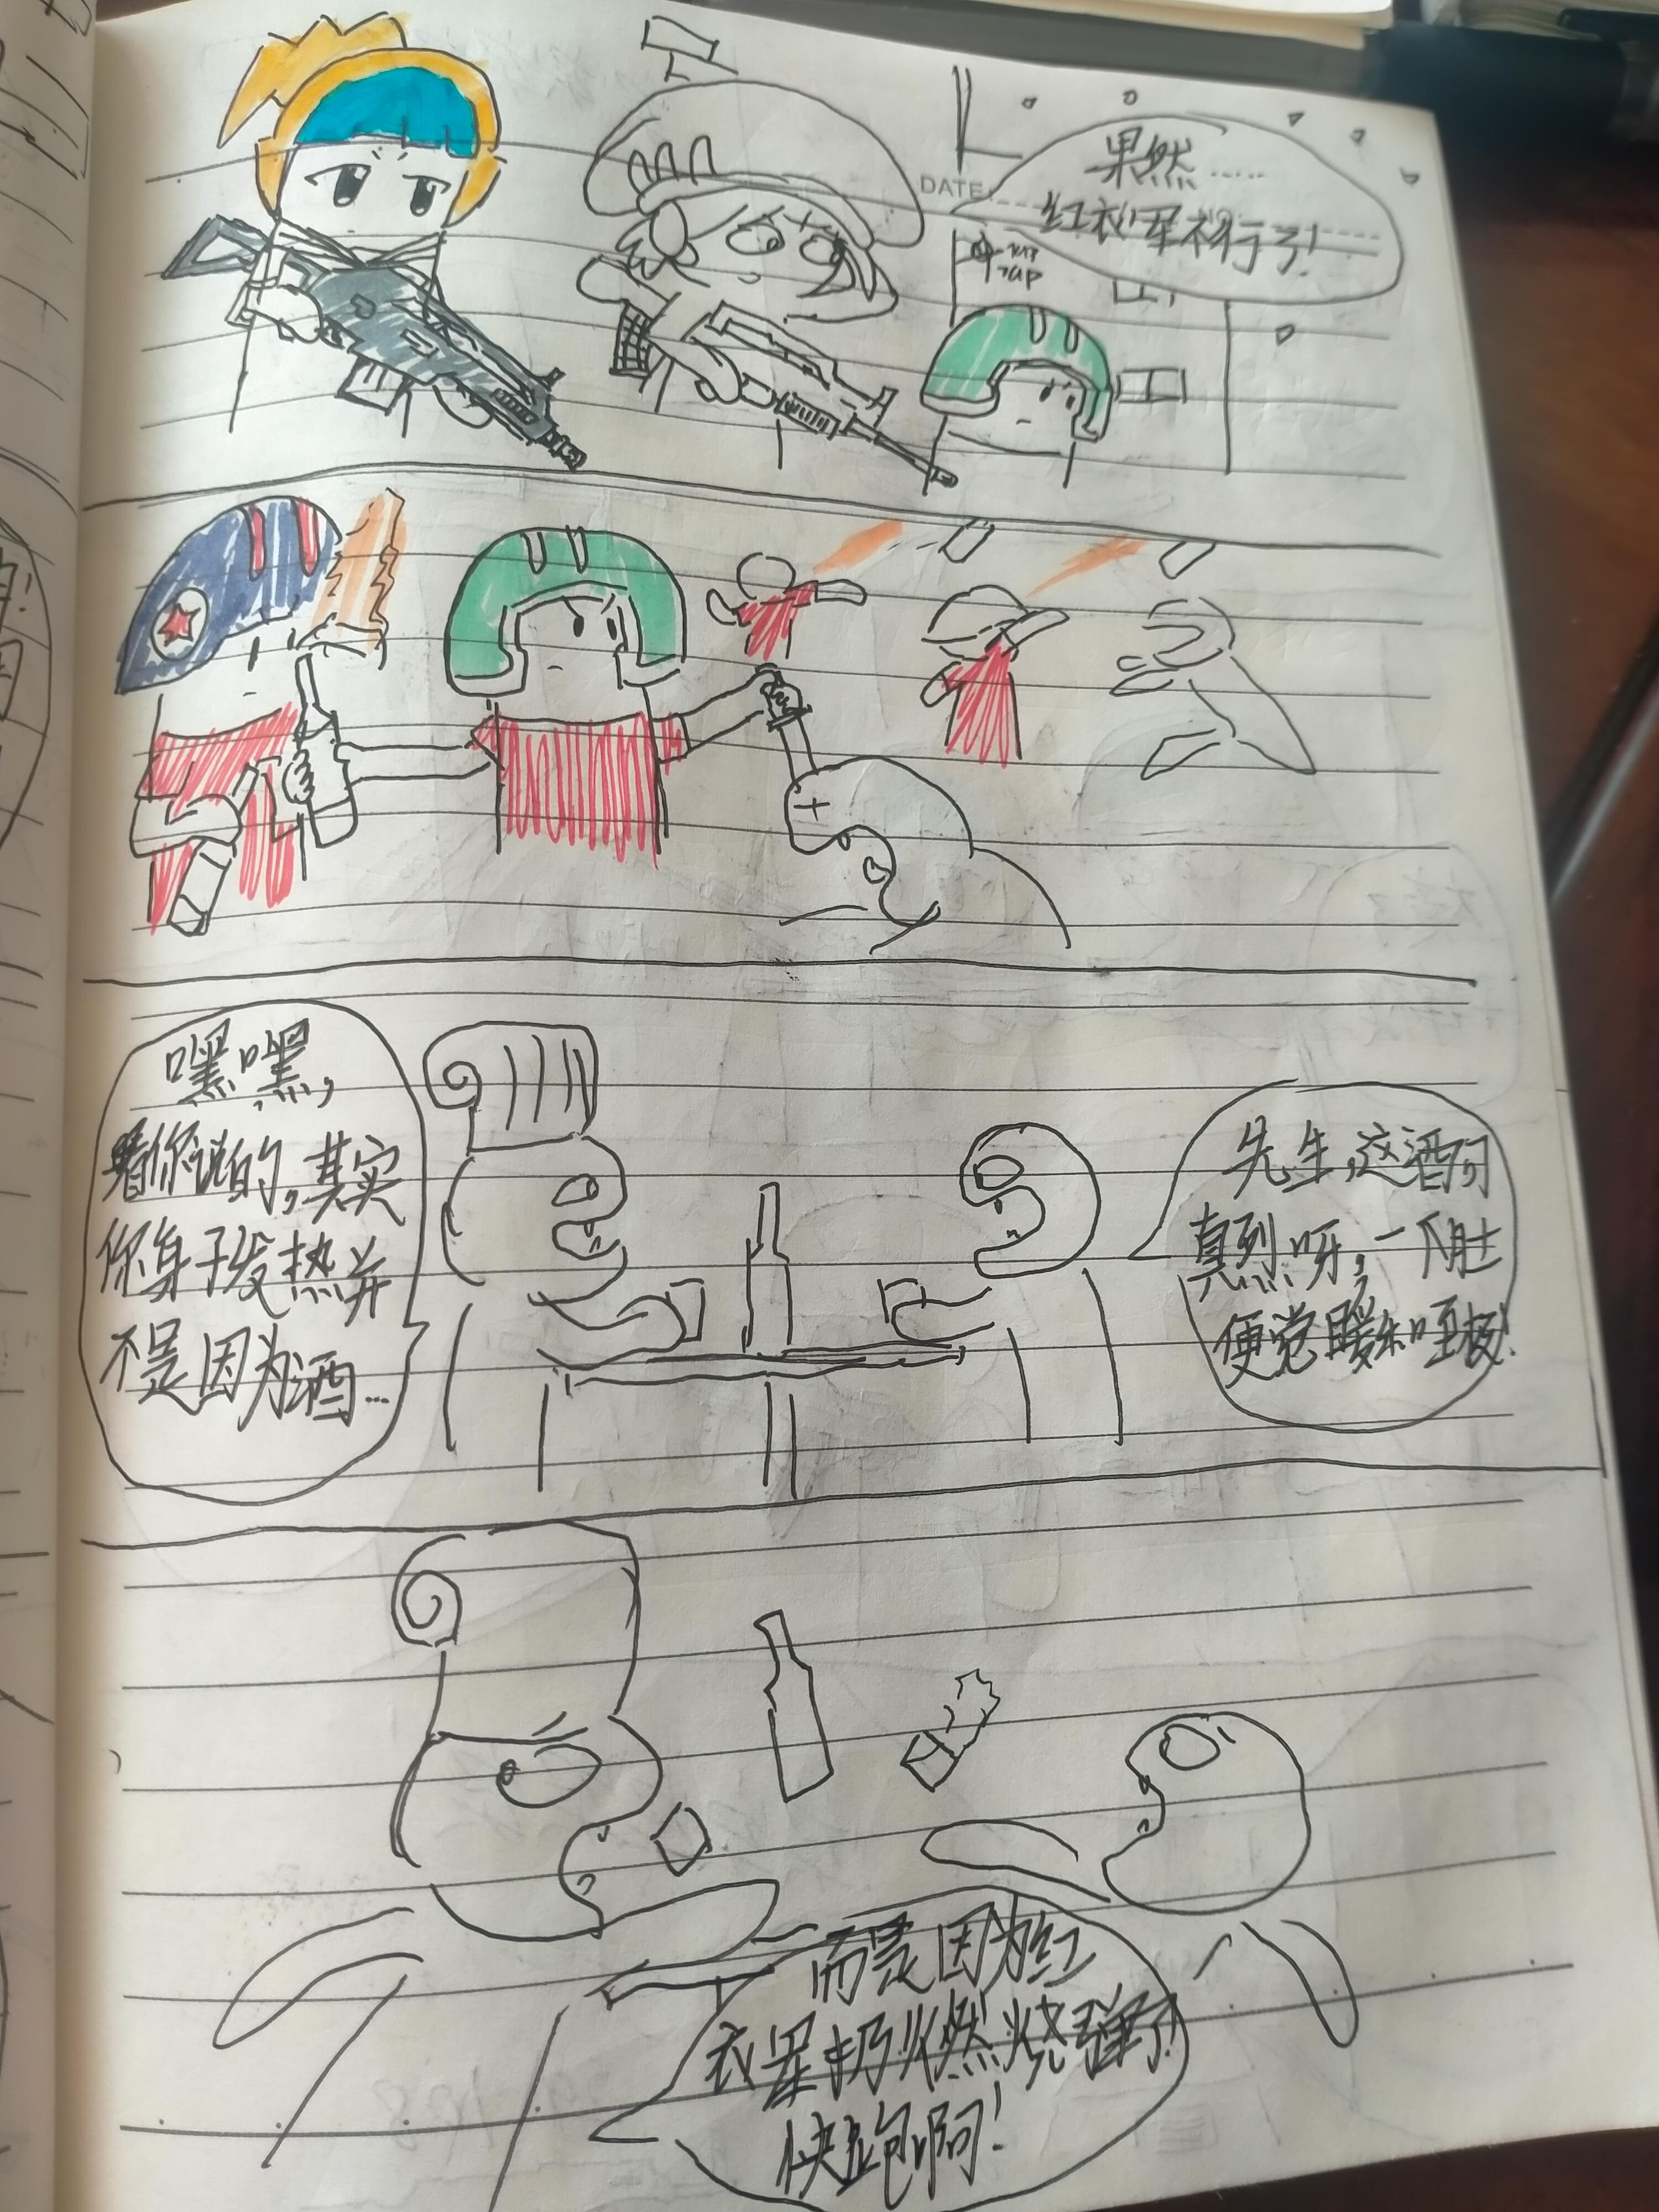 DATE
果然……
红衫军初行了!
嘿嘿,
瞧你说的,其实
你身子发热并
不是因为酒…
先生,这酒可
真烈呀,一下肚
便觉暖和至极!
而是因为红
衣军扔燃烧弹了!
快跑啊!